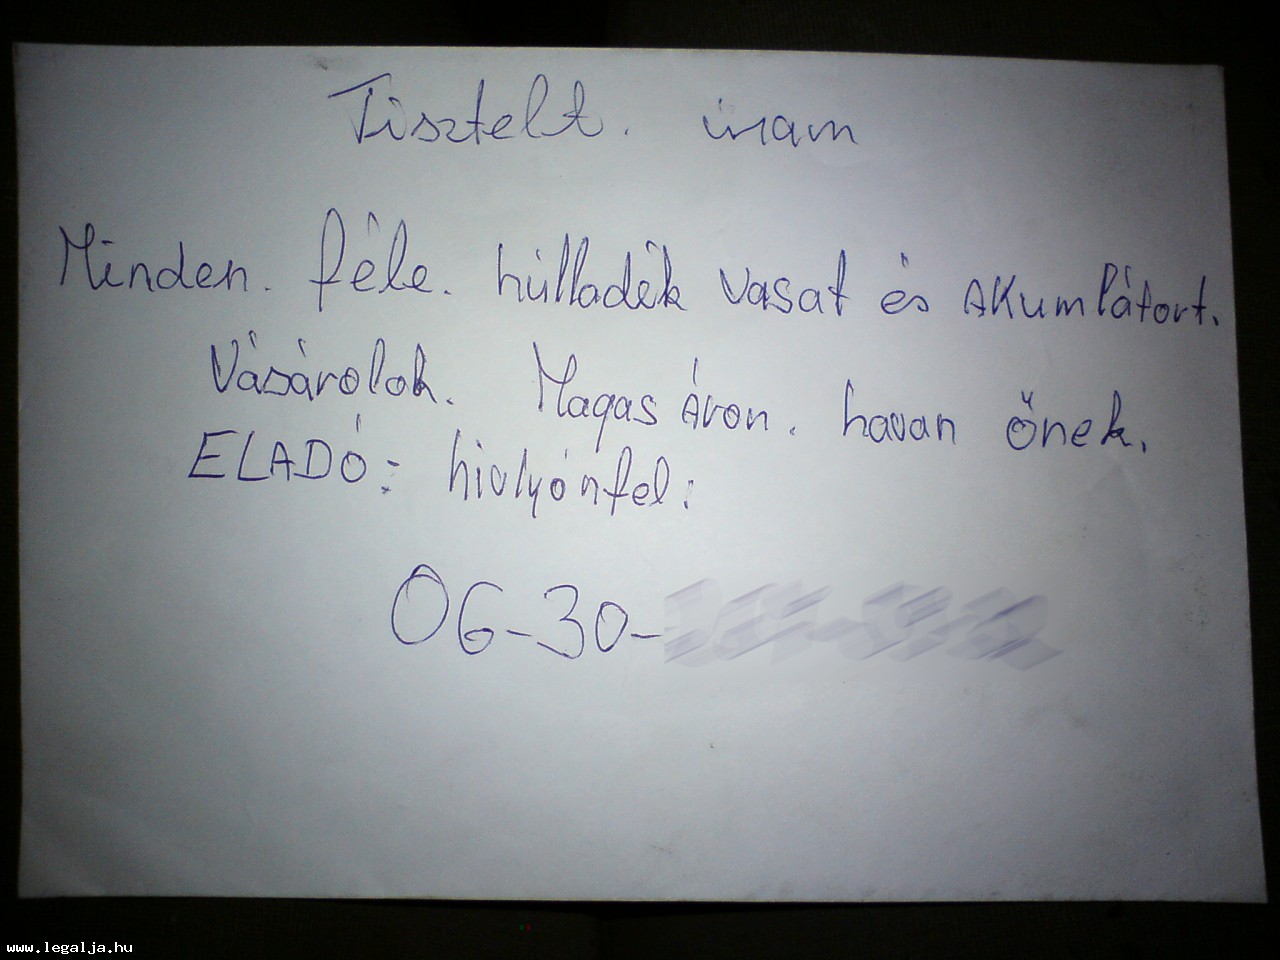 Tisztelt. úram
Minden. féle. húlladék vasat és AKumlátort.
Vásárolok. Magas Áron. havan őnek.
ELADÓ: hivlyónfel:
06-30-
www.legalja.hu